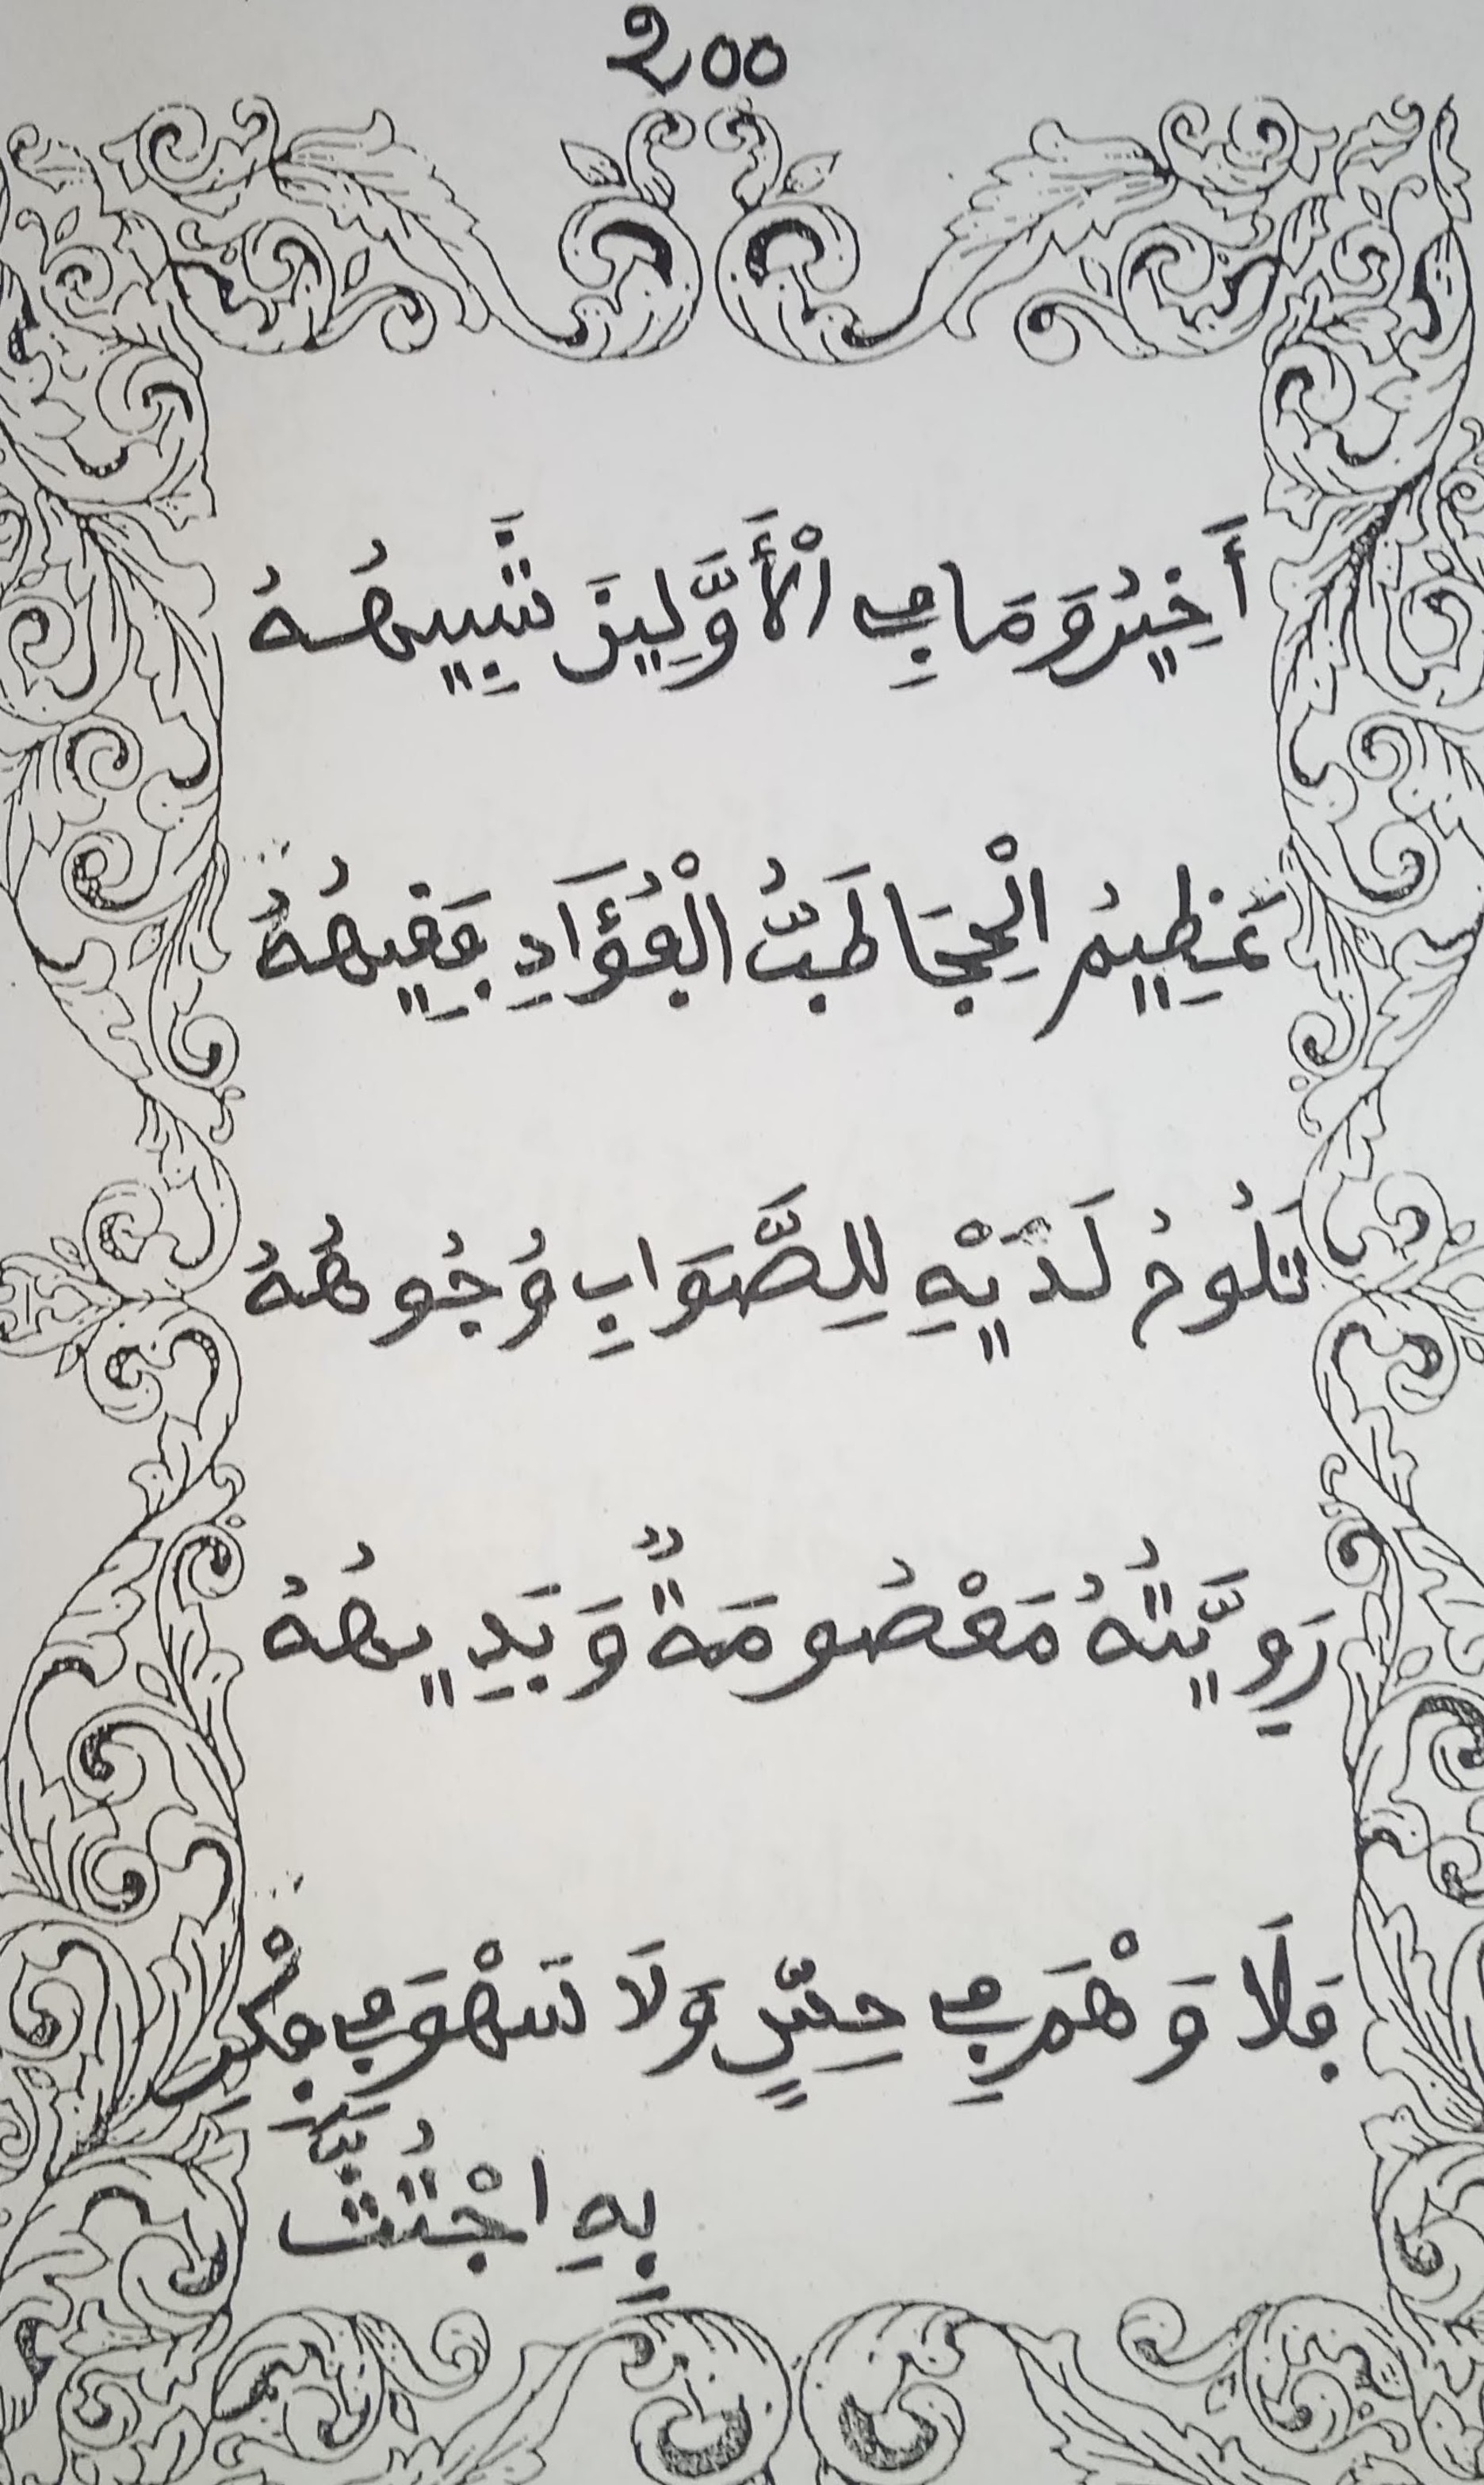 200
أَخِيرٌ وَمَا فِي الْأَوَّلِينَ شَبِيهُهُ
عَظِيمُ الْحِجَا طَبُّ الْفُؤَادِ فَقِيهُهُ
تَلُوحُ لَدَيْهِ لِلصَّوَابِ وُجُوهُهُ
رَوِيَّتُهُ مَعْصُومَةٌ وَبَدِيهُهُ
فَلَا وَهْمَ فِي حِسٍّ وَلَا سَهْوَ فِي فِكْرِ
بِهِ اجْتُثَّ